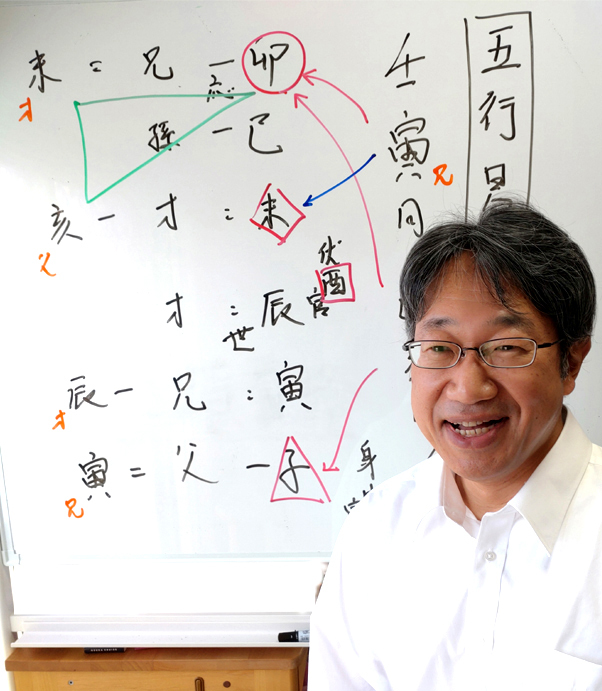 五行易
壬寅
同
未 = 兄 - 卯
才 応
孫 - 巳
亥 - 才 = 未
父
伏
酉
才 = 辰 官
世
辰 - 兄 = 寅
才
寅 = 父 - 子
兄
兄
身